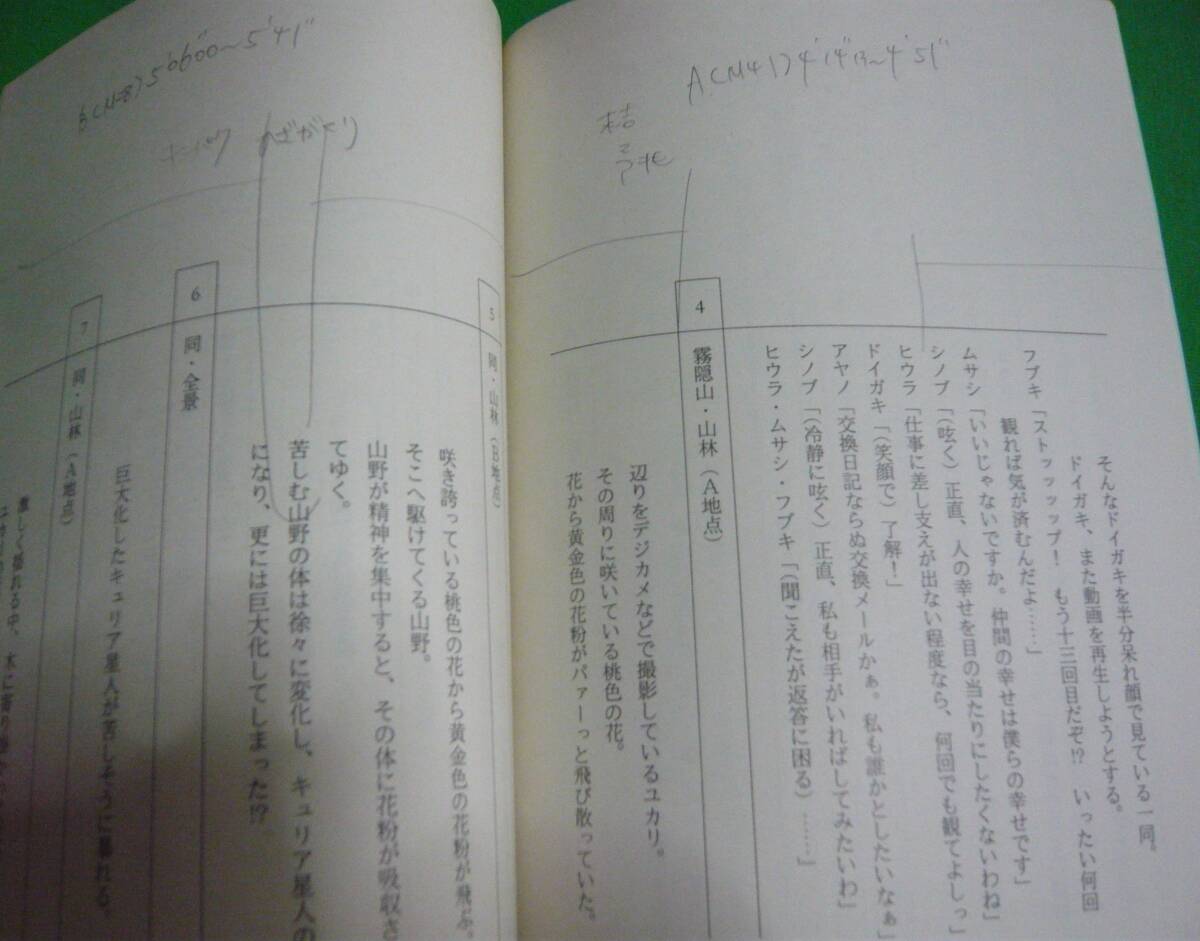 A(M4)7 4'14"13~4'51"
そんなドイガキを半分呆れ顔で見ている一同。
ドイガキ、また動画を再生しようとする。
フブキ「ストッッップ! もう十三回目だぞ!? いったい何回
観れば気が済むんだよ……」
ムサシ「いいじゃないですか。仲間の幸せは僕らの幸せです」
シノブ「(呟く)正直、人の幸せを目の当たりにしたくないわね」
ヒウラ「仕事に差し支えが出ない程度なら、何回でも観てよしっ」
ドイガキ「(笑顔で)了解!」
アヤノ「交換日記ならぬ交換メールかぁ。私も誰かとしたいなぁ」
シノブ「(冷静に呟く)正直、私も相手がいればしてみたいわ」
ヒウラ・ムサシ・フブキ「(聞こえたが返答に困る)……」
4 霧隠山・山林(A地点)
辺りをデジカメなどで撮影しているユカリ。
その周りに咲いている桃色の花。
花から黄金色の花粉がパァーっと飛び散っていた。
5'06"00~5'41"
5 同・山林(B地点)
咲き誇っている桃色の花から黄金色の花粉が飛ぶ。
そこへ駆けてくる山野。
山野が精神を集中すると、その体に花粉が吸収さ
てゆく。
苦しむ山野の体は徐々に変化し、キュリア星人の
になり、更には巨大化してしまった!?
6 同・全景
巨大化したキュリア星人が苦しそうに暴れる。
7 同・山林(A地点)
激しく揺れる中、木に寄り